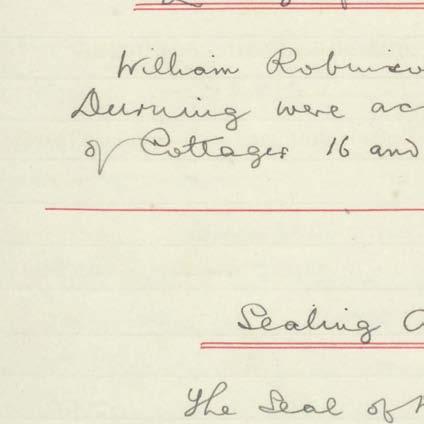 William Robinso
Durning were ac
of Cottages 16 and
Sealing
The Seal of